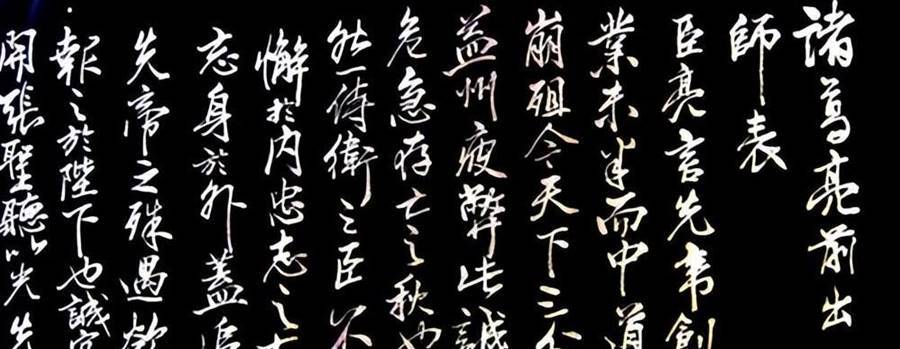 諸葛亮前出
師表
臣亮言先帝創
業未半而中道
崩殂今天下三分
益州疲弊此誠
危急存亡之秋也
然侍衛之臣不
懈於内忠志之士
忘身於外蓋追
先帝之殊遇欲
報之於陛下也誠宜
開張聖聽以光先